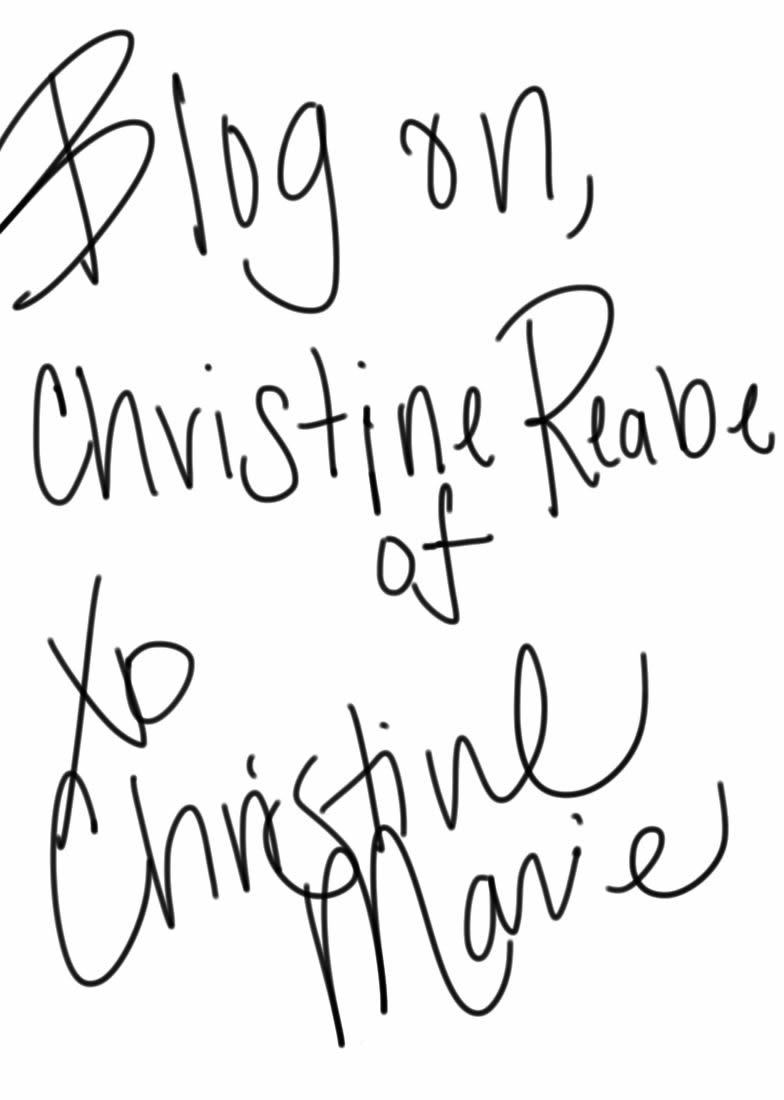 Blog on,
Christine Reabe
of
xo
Christine
Marie